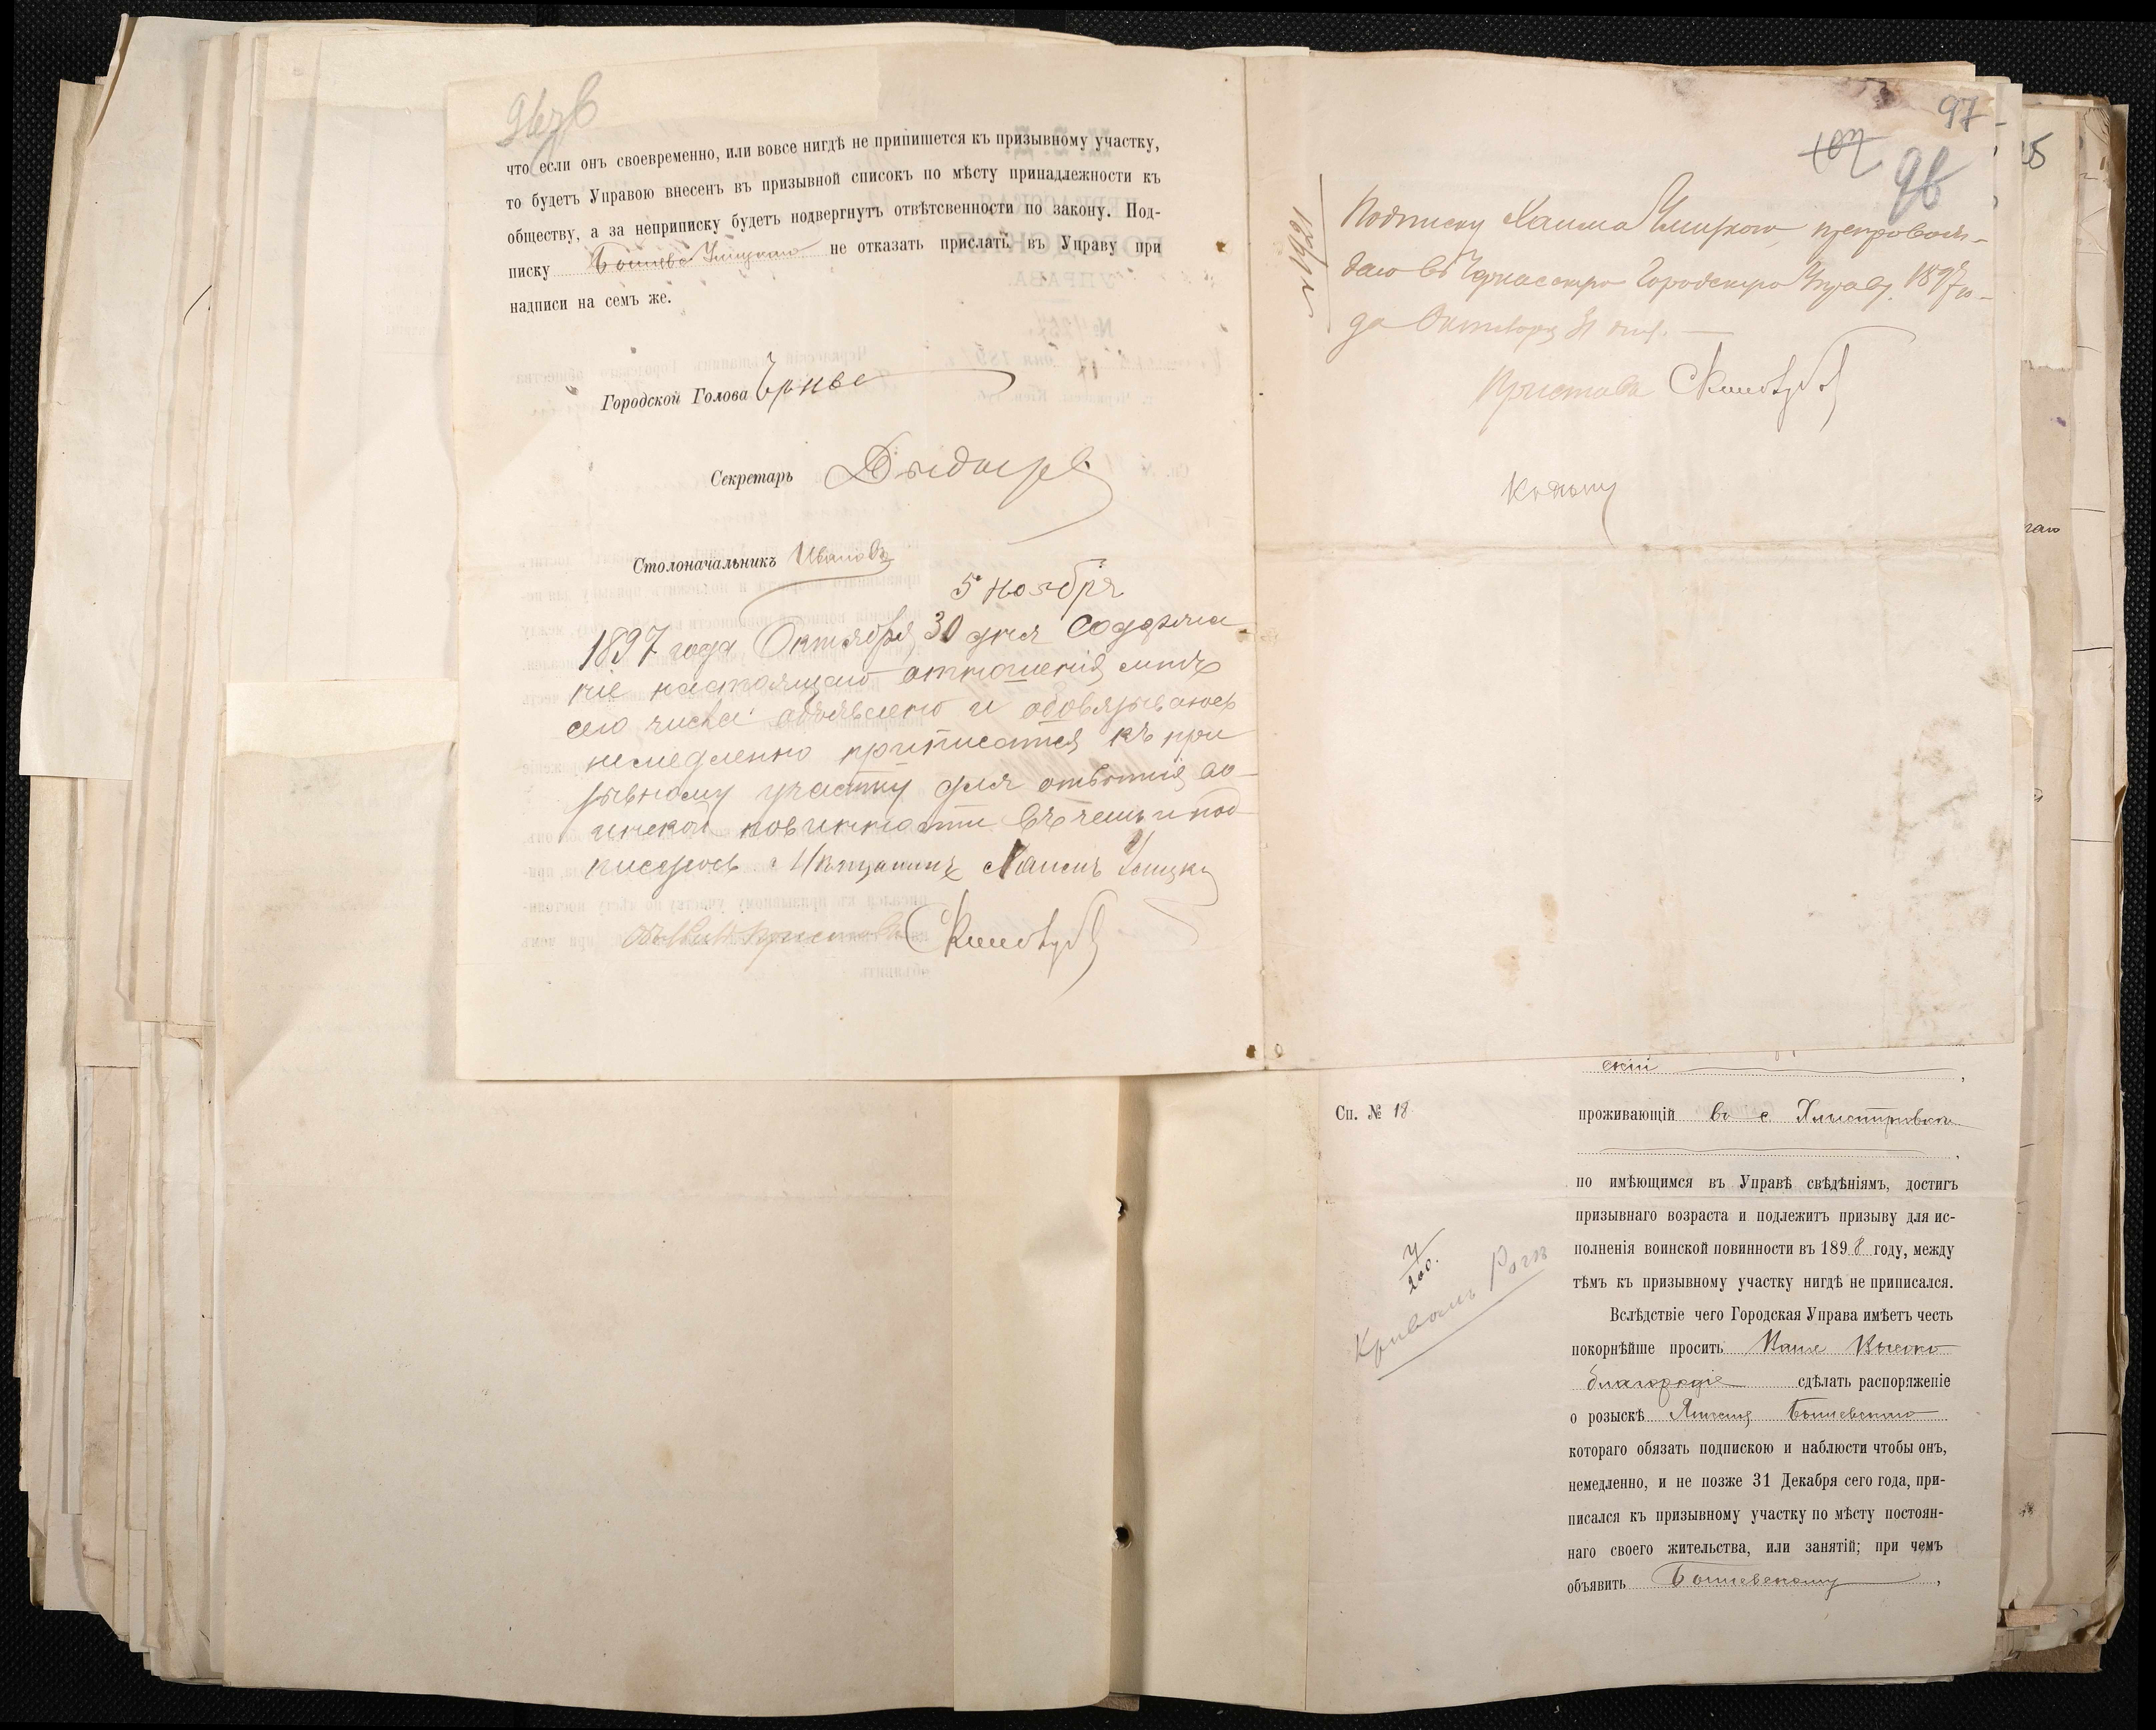 что если онъ своевременно, или вовсе нигдѣ не припишется къ призывному участку,
то будетъ Управою внесенъ въ призывной списокъ по мѣсту принадлежности къ
обществу, а за неприписку будетъ подвергнутъ отвѣтсвенности по закону. Под-
писку Ушцкаго не отказать прислать въ Управу при
надписи на семъ же.
Городской Голова
Секретарь
Столоначальникъ Ивановъ
5 Ноября
1897 года Октября 30 дня Содержа
ніе настоящаго отношенія мнѣ
сего числа объявлено и обовязываюсь
немедленно приписатся къ при
зывному участку для отбытія во-
инской повинности въ чемъ и под
писуюсь Мѣщанинъ Хаимъ Ушцки
Приставъ
97
96
№ 1921
Подписку Хаима Ушцкого препровож-
даю въ Черкасскую Городскую Управу. 1897 го-
да Октября 31 дня.
Приставъ
Копому
скій ,
Сп. № 18
проживающій въ с Хлистуновкѣ
,
по имѣющимся въ Управѣ свѣдѣніямъ, достигъ
призывнаго возраста и подлежитъ призыву для ис-
полненія воинской повинности въ 1898 году, между
тѣмъ къ призывному участку нигдѣ не приписался.
Вслѣдствіе чего Городская Управа имѣетъ честь
покорнѣйше просить Ваше Высоко
благородіе сдѣлать распоряженіе
о розыскѣ Бошевскаго
котораго обязать подпискою и наблюсти чтобы онъ,
немедленно, и не позже 31 Декабря сего года, при-
писался къ призывному участку по мѣсту постоян-
наго своего жительства, или занятій; при чемъ
объявить Бошевскому ,
4/200.
Кривомъ Рогѣ